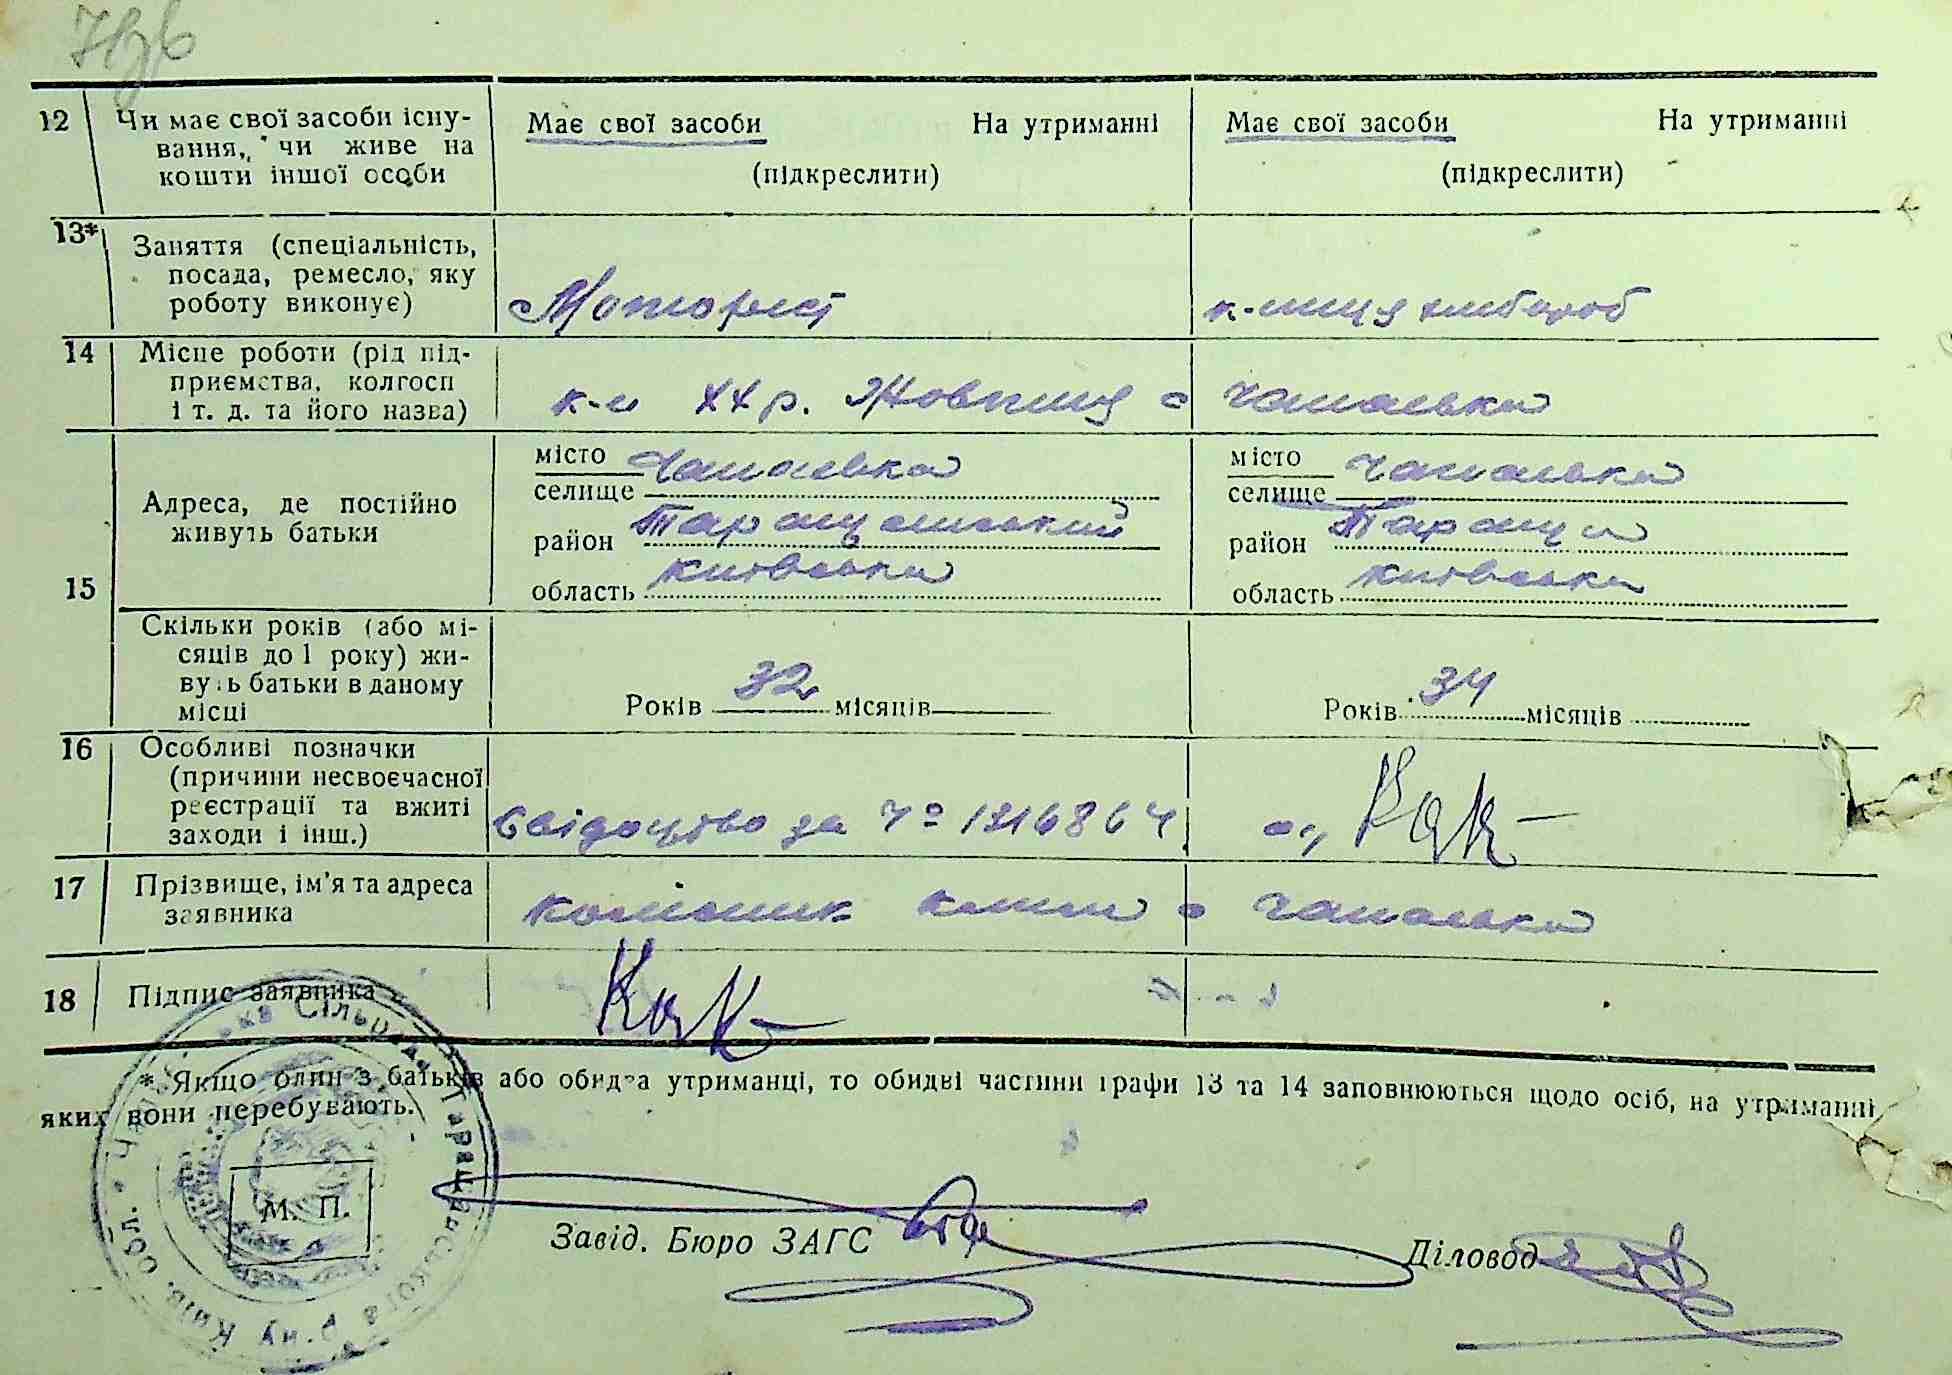 12 Чи має свої засоби існу-
вання, чи живе на
кошти іншої особи
Має свої засоби На утриманні
(підкреслити)
Має свої засоби На утриманні
(підкреслити)
13* Заняття (спеціальність,
посада, ремесло, яку
роботу виконує)
Моторист
к-ниця хлібороб
14 Місце роботи (рід під-
приємства, колгосп
і т. д. та його назва)
к-п ХХ р. Жовтня с Чапаєвка
15 Адреса, де постійно
живуть батьки
місто
селище Чапаєвка
район Таращанський
область Київська
місто
селище Чапаєвка
район Тараща
область Київська
Скільки років (або мі-
сяців до 1 року) жи-
вуть батьки в даному
місці
Років 32 місяців
Років 34 місяців
16 Особливі позначки
(причини несвоєчасної
реєстрації та вжиті
заходи і інш.)
Свідоцтво за Ч° 1316864
17 Прізвище, ім'я та адреса
заявника
с Чапаєвка
18 Підпис заявника
* Якщо один з батьків або обидва утриманці, то обидві частини графи 13 та 14 заповнюються щодо осіб, на утриманні
яких вони перебувають.
М. П.
Завід. Бюро ЗАГС
Діловод
Сільрада Таращанського р-ну Київ. обл.